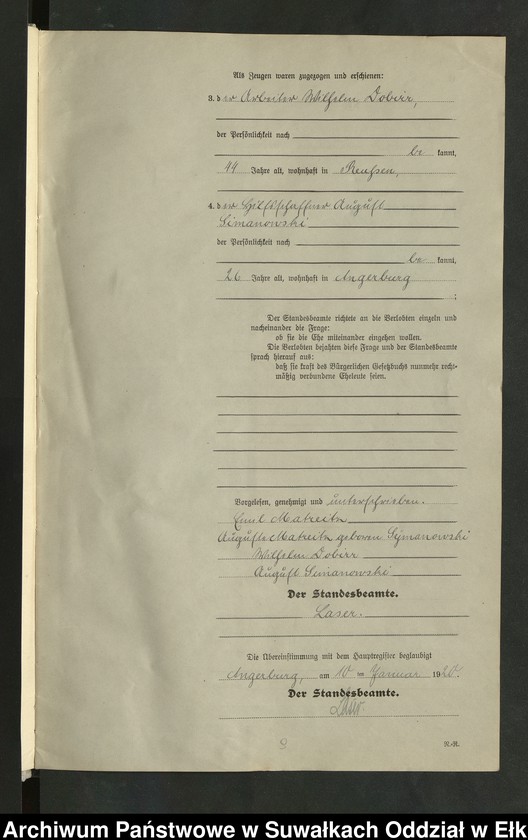 Als Zeugen waren zugezogen und erschienen:
3. der Arbeiter Wilhelm Dobirr,
der Persönlichkeit nach
be kannt,
44 Jahre alt, wohnhaft in Reußen,
4. der Hilfsschaffner August
Simanowski
der Persönlichkeit nach
be kannt,
26 Jahre alt, wohnhaft in Angerburg
;
Der Standesbeamte richtete an die Verlobten einzeln und
nacheinander die Frage:
ob sie die Ehe miteinander eingehen wollen.
Die Verlobten bejahten diese Frage und der Standesbeamte
sprach hierauf aus:
daß sie kraft des Bürgerlichen Gesetzbuchs nunmehr recht-
mäßig verbundene Eheleute seien.
Vorgelesen, genehmigt und unterschrieben.
Emil Matreitz
Auguste Matreitz geboren Symanowski
Wilhelm Dobirr
August Simanowski
Der Standesbeamte.
Laser.
Die Übereinstimmung mit dem Hauptregister beglaubigt
Angerburg, am 10 ten Januar 1920.
Der Standesbeamte.
Laser
9
N.-R.
Archiwum Państwowe w Suwałkach Oddział w Ełk